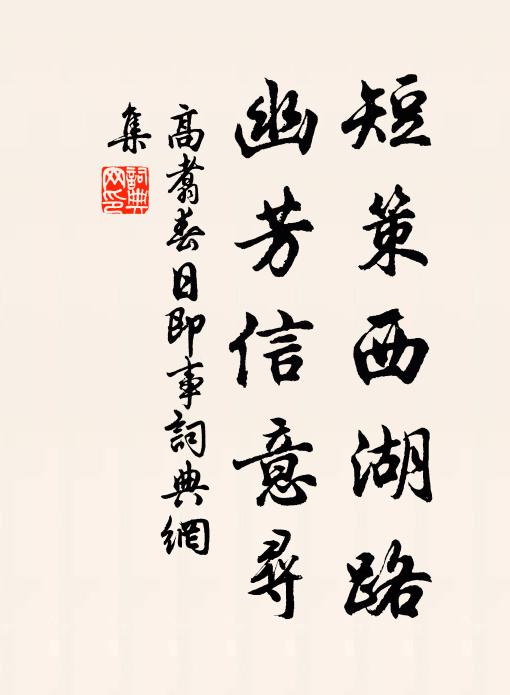 短策西湖路
幽芳信意尋
高翥春日即事詞典網
集
詞典
网印